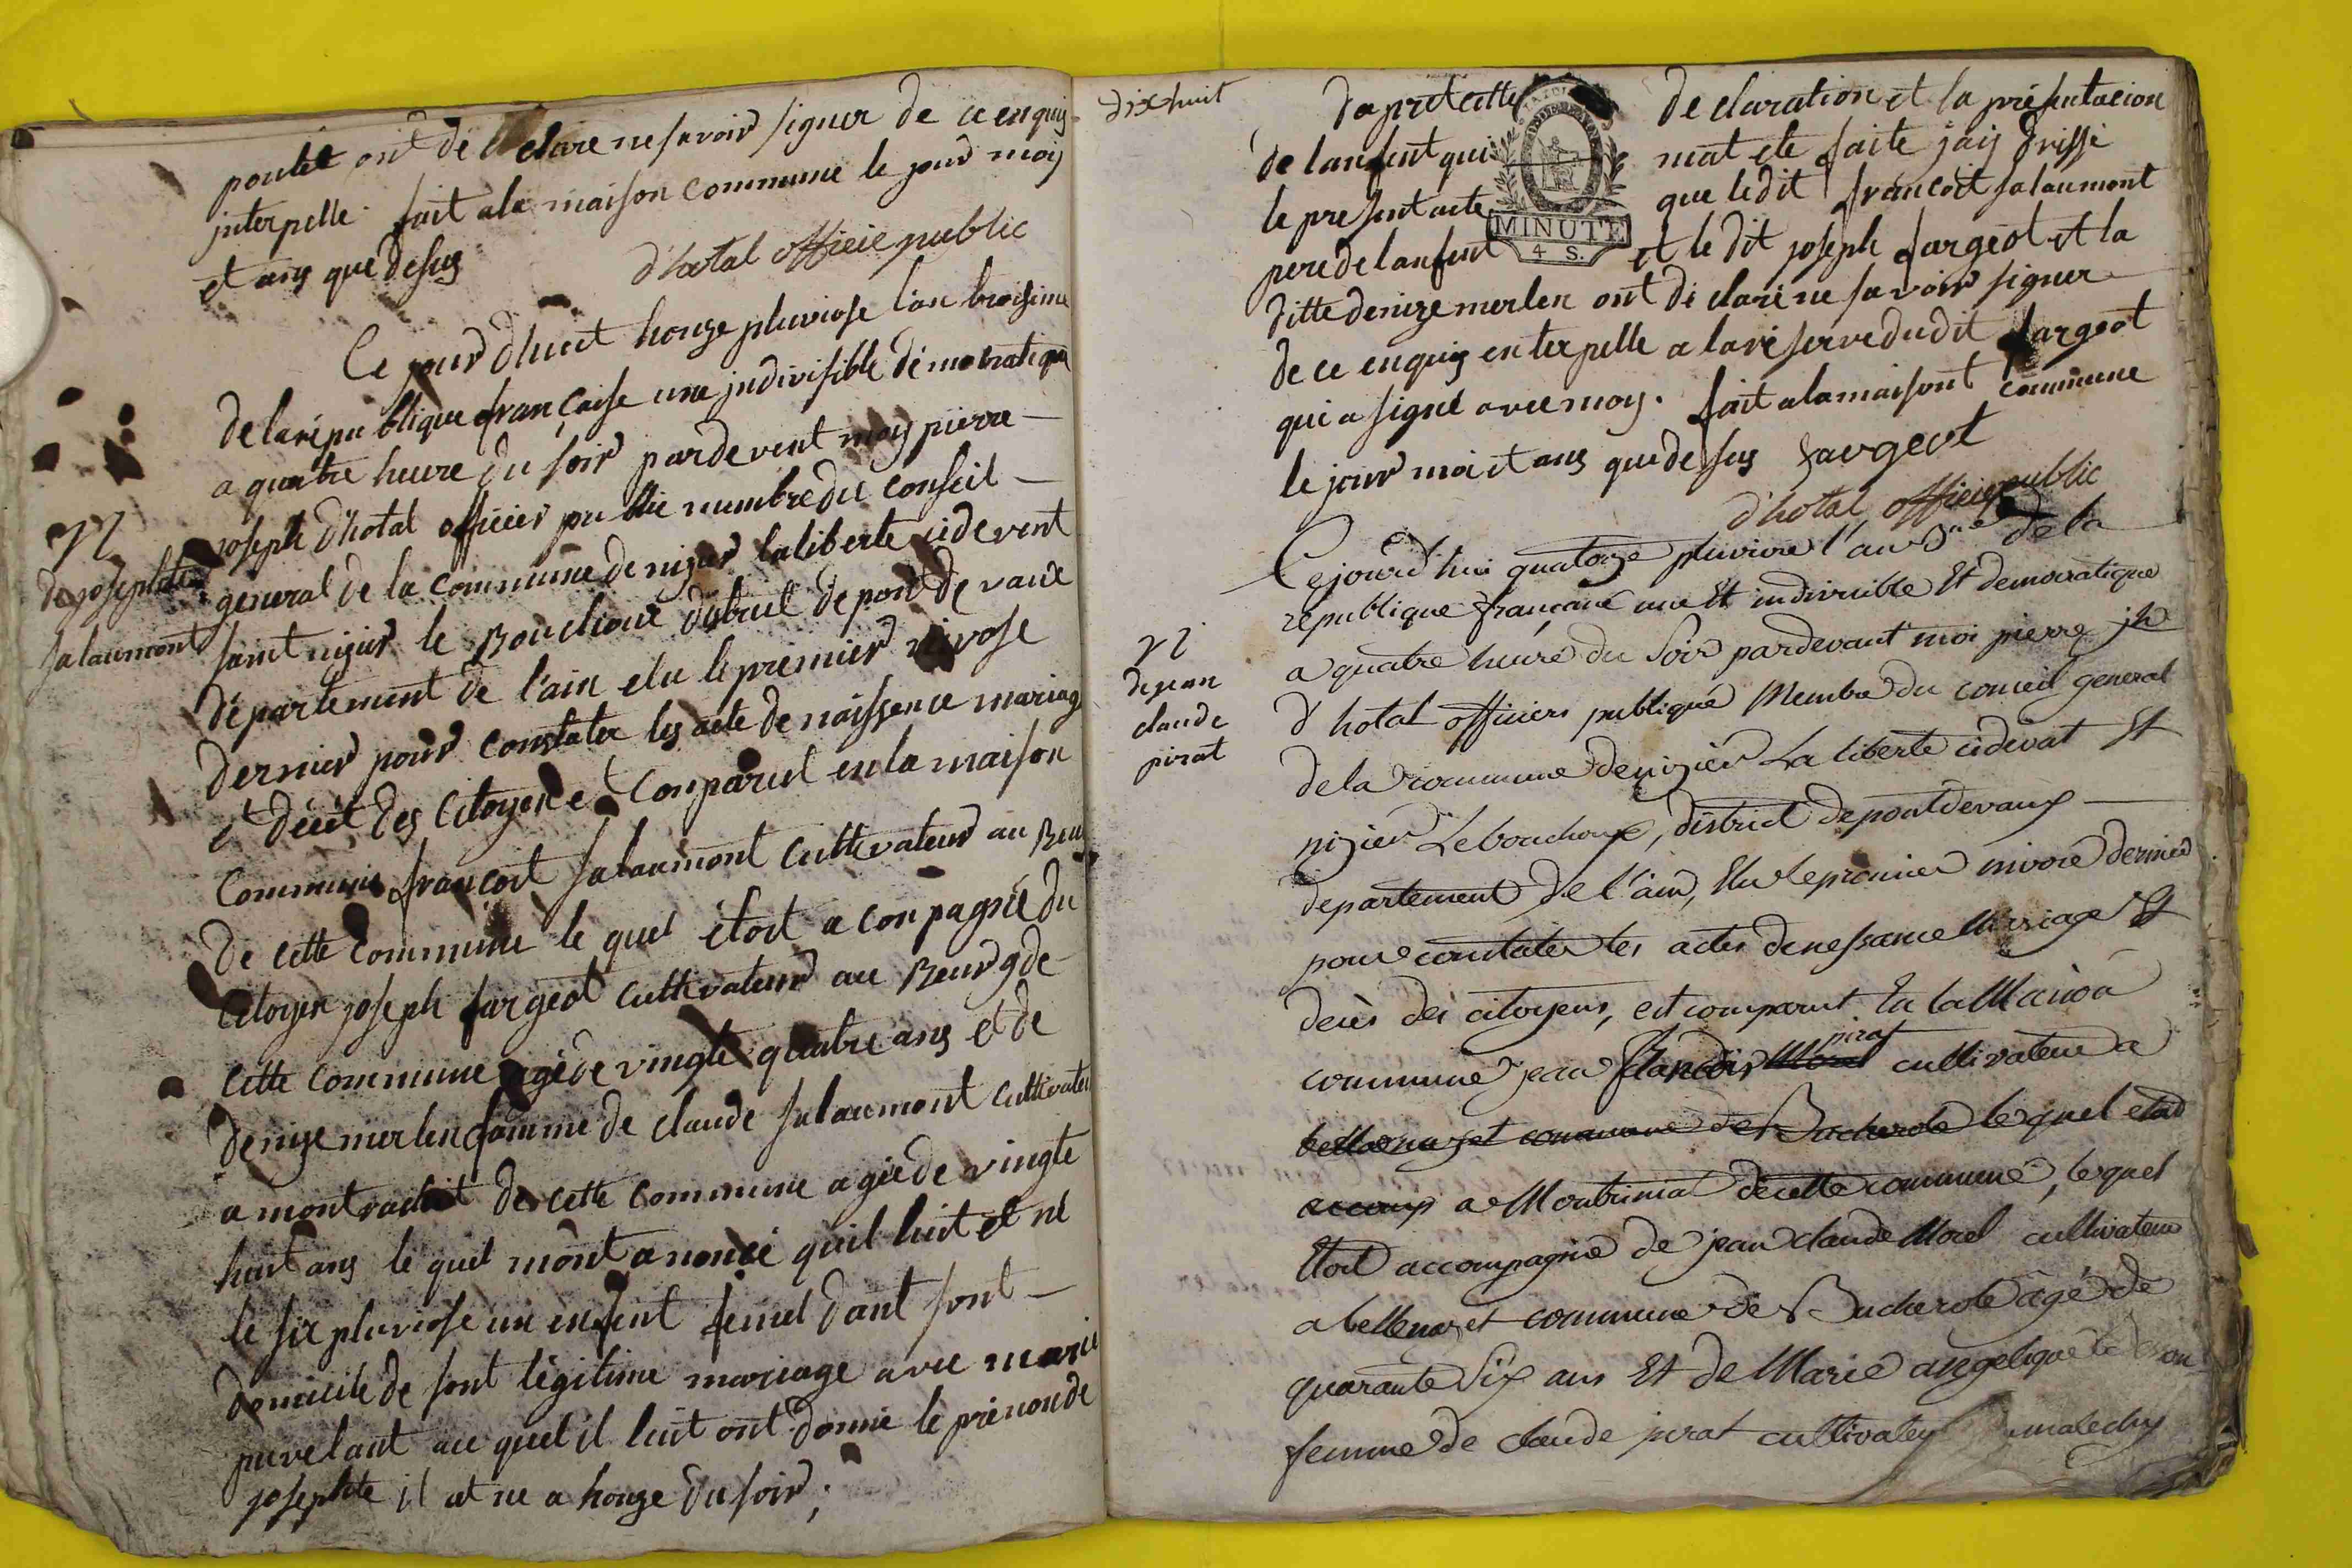 poulet ont declare ne savoir signer de ce enquis
interpelle. fait ala maison commune le jour mois
et ans que desus
d'hotal officie public
Ce jour dhuit honze pluviose l'an troisime
de larépublique française une indivisible démocratique
a quatre heure du soir pardevent moy pierre
joseph d'hotal officier public membre du conseil
N
de josephte
salaumont
general de la commune de nizier laliberte cidevent
saint nizier le Bouchoux distruct de pont de vaux
département de l'ain elu le premier nivose
dernier pour constater les acte de naissence mariage
et décèt des citoyen e comparut en la maison
commune françoit salaumont cultivateur au Bour
de cette commune le quel étoit a conpagnié du
citoyen joseph fargeot cultivateur au Bourg de
cette commune agé de vingte quatre ans et de
denize merlen famme de claude salaumont cultivateu
a montradit de cette commune agée de vingte
huit ans le quel mont anoncé quil luit et né
le six pluviose un enfent femel dant sont
domicile de sont légitime mariage avec marie
puvelant au quel il luit ont donné le prénon de
josephte il at ne a honze du soir;
dixhuit
daprét cette declaration et la présentacion
de lanfent qui mat ete faite jais drissé
le present acte que ledit françoit salaumont
MINUTE
4 S.
pere de lanfent et le dit joseph fargeot et la
ditte denize merlen ont declaré ne savoir signer
de ce enquis enterpelle a la réserve dudit fargeot
qui a signé avec moy. fait alamaisont commune
le jour moi et ans que desus fargeot
d'hotal officier public
Cejourd'hui quatorze pluviose l'an 3me de la
republique française une Et indivisible Et democratique
N
de jean
claude
pirat
a quatre heure du soir pardevant moi pierre jh
d'hotal officiers publique Membre du conseil general
de la commune de nizier La liberte cidevat St
nizier Lebouchoux, district depontdevaux
departement de l'ain, Elu le premier nivose dernier
pour constater les actes denessance Mariage Et
deces des citoyens, est comparut En la Maison
commune jean françois Morel pirat cultivateur a
bellenozet commune de Bucherole lequel etoit
accomp a Montrimat de cette commune, lequel
Etoit accompagnié de jean claude Morel cultivateur
a bellenozet commune de Bucherole âgé de
quarante six ans Et de Marie angelique
femme de claude pirat cultivateur